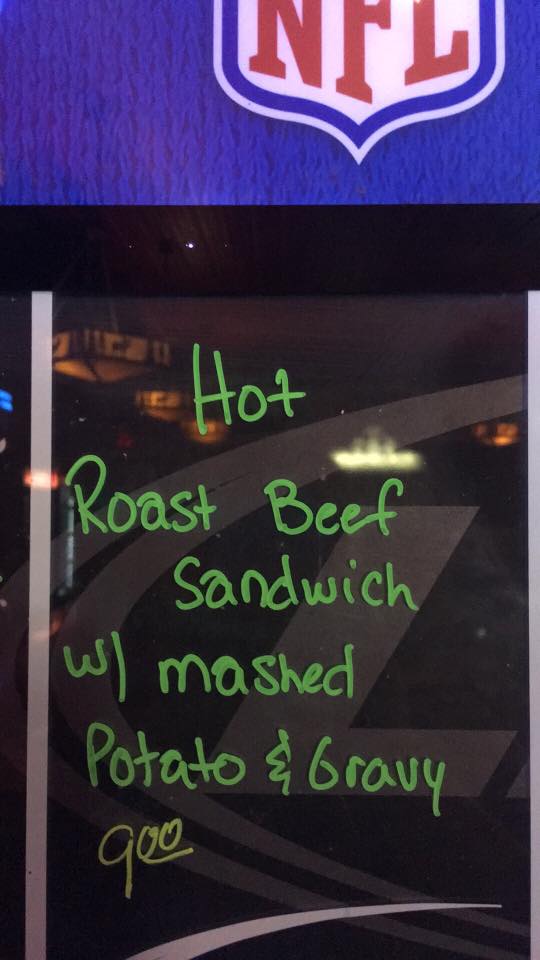 NFL
Hot
Roast Beef
Sandwich
w/ mashed
Potato & Gravy
900